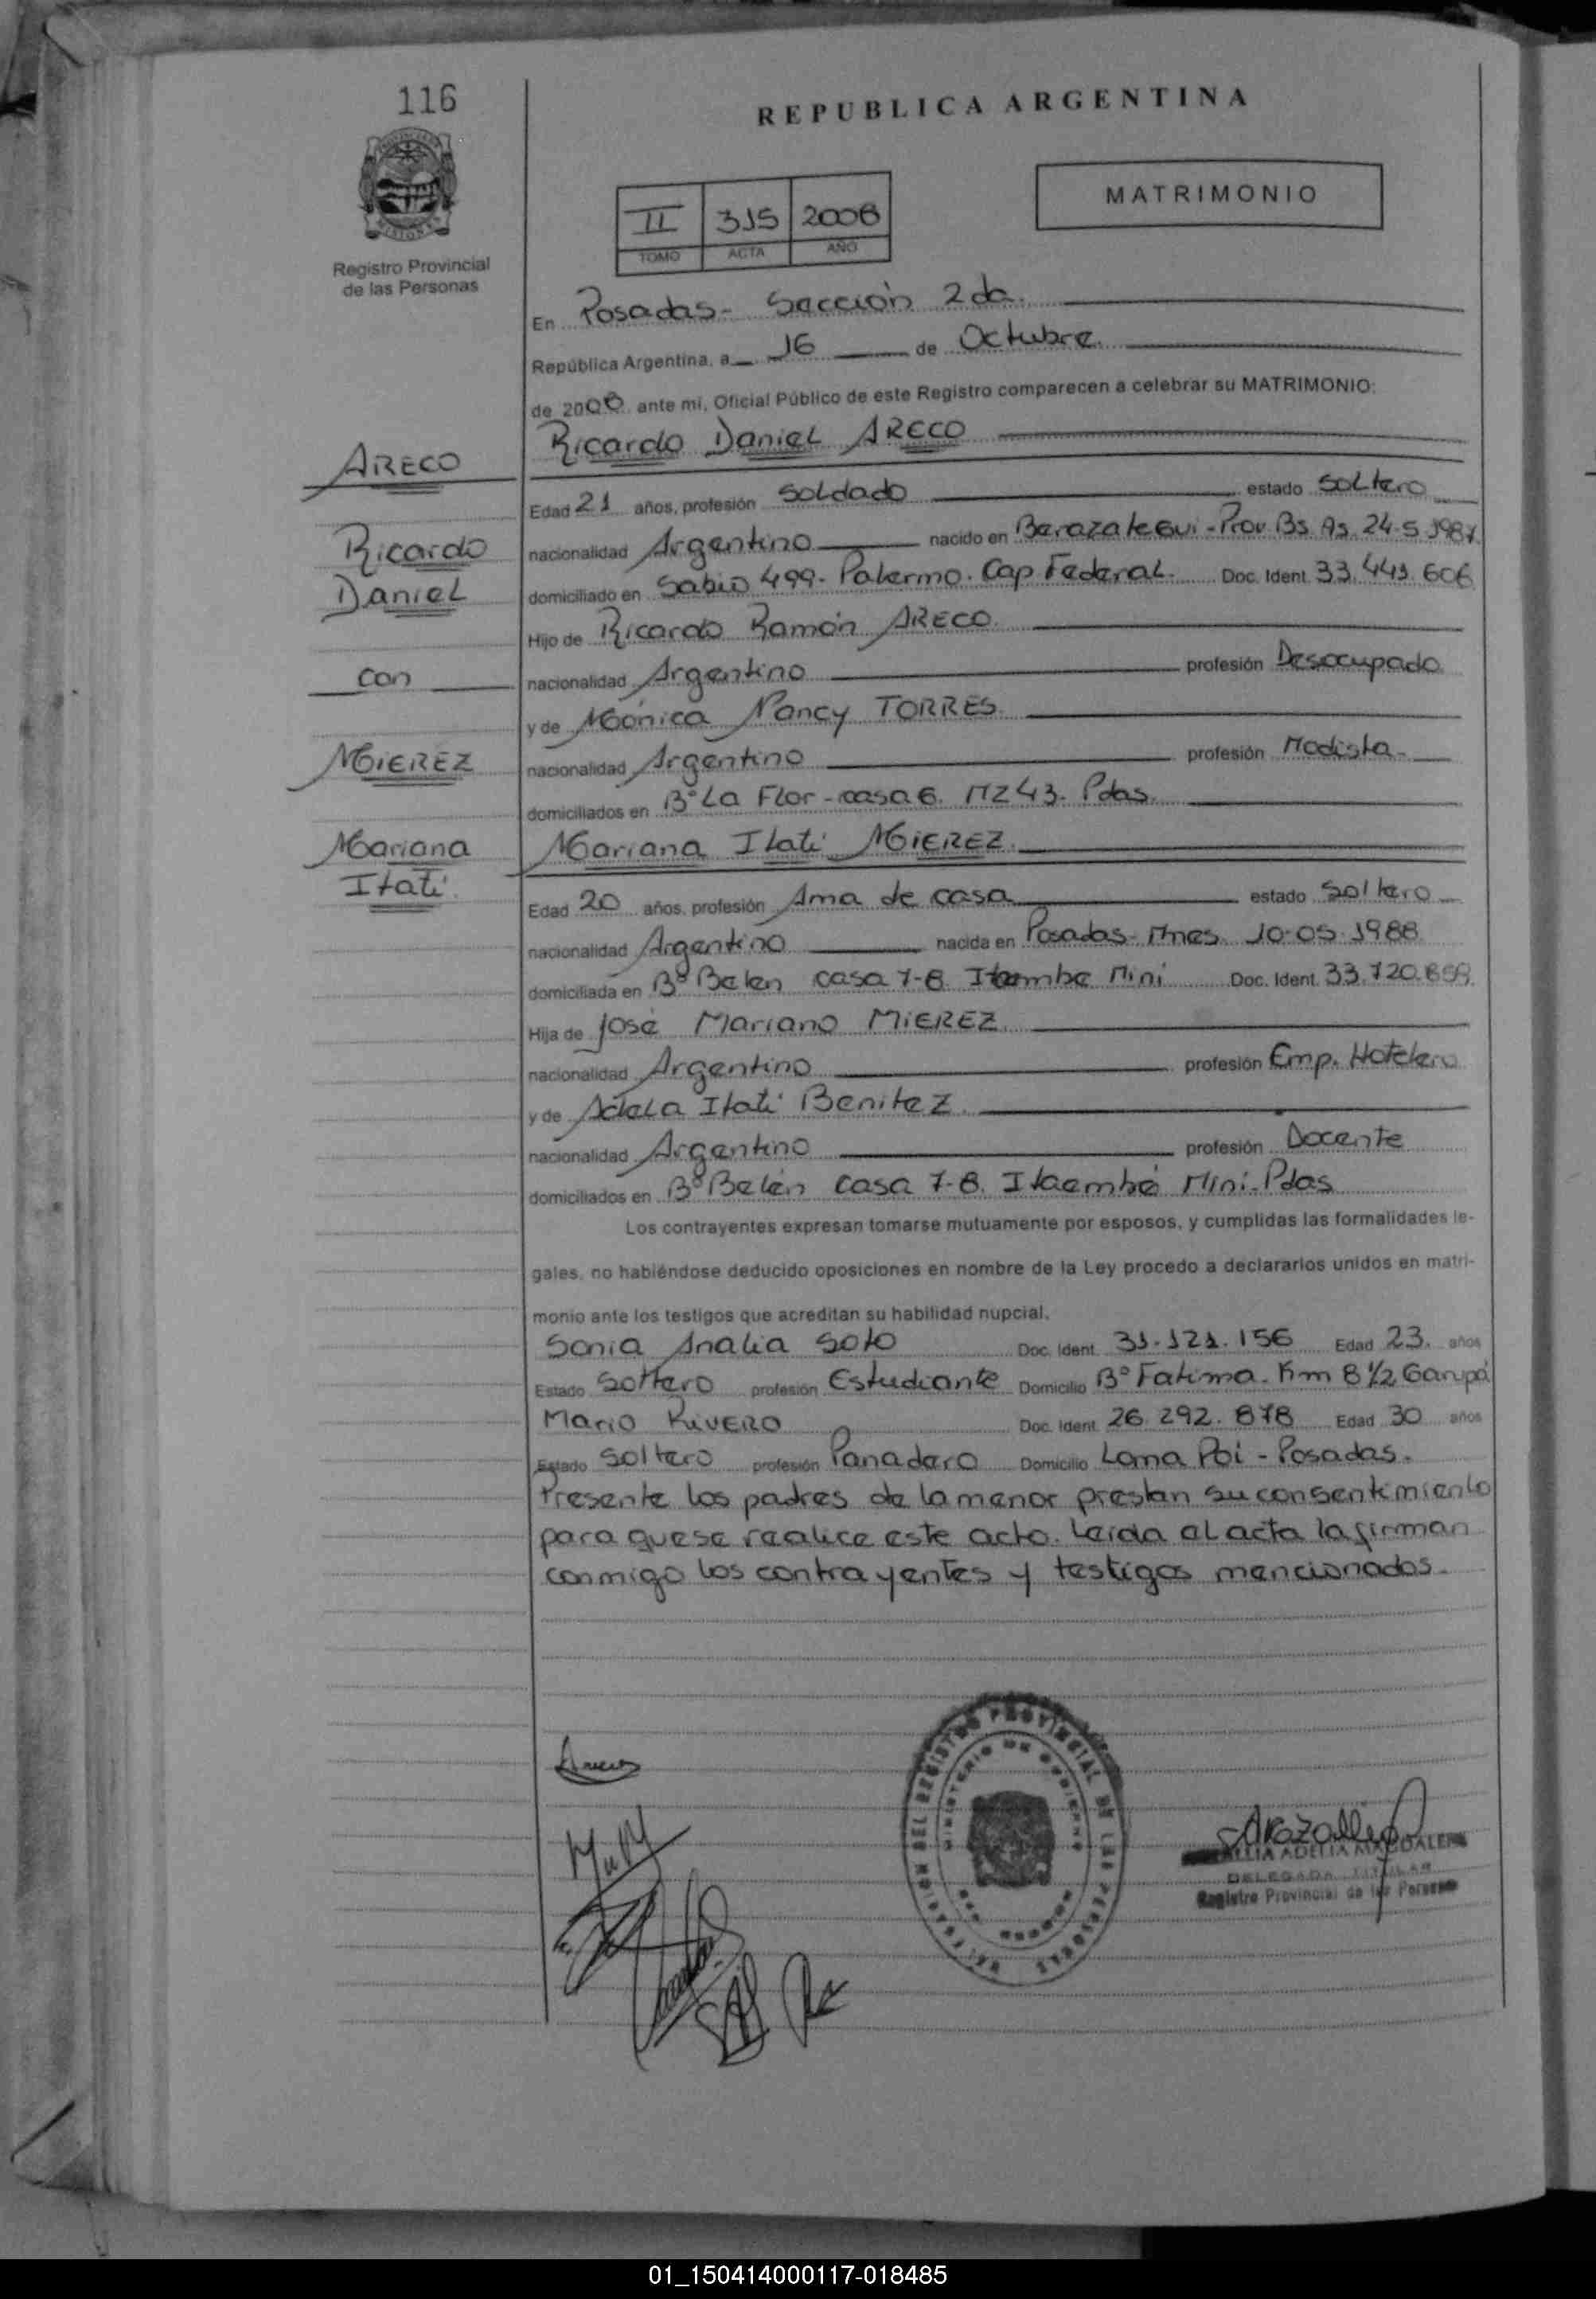 116
REPUBLICA ARGENTINA
MATRIMONIO
II 315 2008
TOMO ACTA AÑO
Registro Provincial
de las Personas
En Posadas- Sección 2da.
República Argentina, a 16 de Octubre.
de 2008 ante mi, Oficial Público de este Registro comparecen a celebrar su MATRIMONIO:
Ricardo Daniel ARECO
ARECO
Edad 21 años, profesión Soldado estado Soltero
Ricardo
nacionalidad Argentino nacido en Berazategui - Prov. Bs. As. 24-5-1987
Daniel
domiciliado en Sabio 499- Palermo. Cap Federal. Doc. Ident. 33.443.606
Hijo de Ricardo Ramón ARECO.
con
nacionalidad Argentino profesión Desocupado
y de Mónica Nancy TORRES.
MIEREZ
nacionalidad Argentino profesión Modista-
domiciliados en B° La Flor - casa 6. MZ 43- Pdas.
Mariana
Itatí.
Mariana Itatí MIEREZ.
Edad 20 años, profesión Ama de casa estado Soltero
nacionalidad Argentino nacida en Posadas- Mnes. 10-05-1988
domiciliada en B° Belen casa 7-8 Itaembe Mini Doc. Ident. 33.720.
Hija de José Mariano MIEREZ
nacionalidad Argentino profesión Emp. Hotelero
y de Adela Itatí Benitez.
nacionalidad Argentino profesión Docente
domiciliados en B° Belén casa 7-8. Itaembé Mini-Pdas
Los contrayentes expresan tomarse mutuamente por esposos, y cumplidas las formalidades le-
gales, no habiéndose deducido oposiciones en nombre de la Ley procedo a declararlos unidos en matri-
monio ante los testigos que acreditan su habilidad nupcial.
Sonia Analia Soto Doc. Ident. 31.121.156 Edad 23. años
Estado Soltero profesión Estudiante Domicilio B° Fatima. Km 8 1/2 Garupá
Mario RIVERO Doc. Ident. 26.292.878 Edad 30 años
Estado Soltero profesión Panadero Domicilio Loma Poi - Posadas.
Presente los padres de la menor prestan su consentimiento
para que se realice este acto. Leida el acta la firman
conmigo los contrayentes y testigos mencionados.
REGISTRO PROVINCIAL DE LAS PERSONAS
MINISTERIO DE GOBIERNO
ADELIA MAGDALENA
DELEGADA TITULAR
Registro Provincial de las Personas
01_150414000117-018485